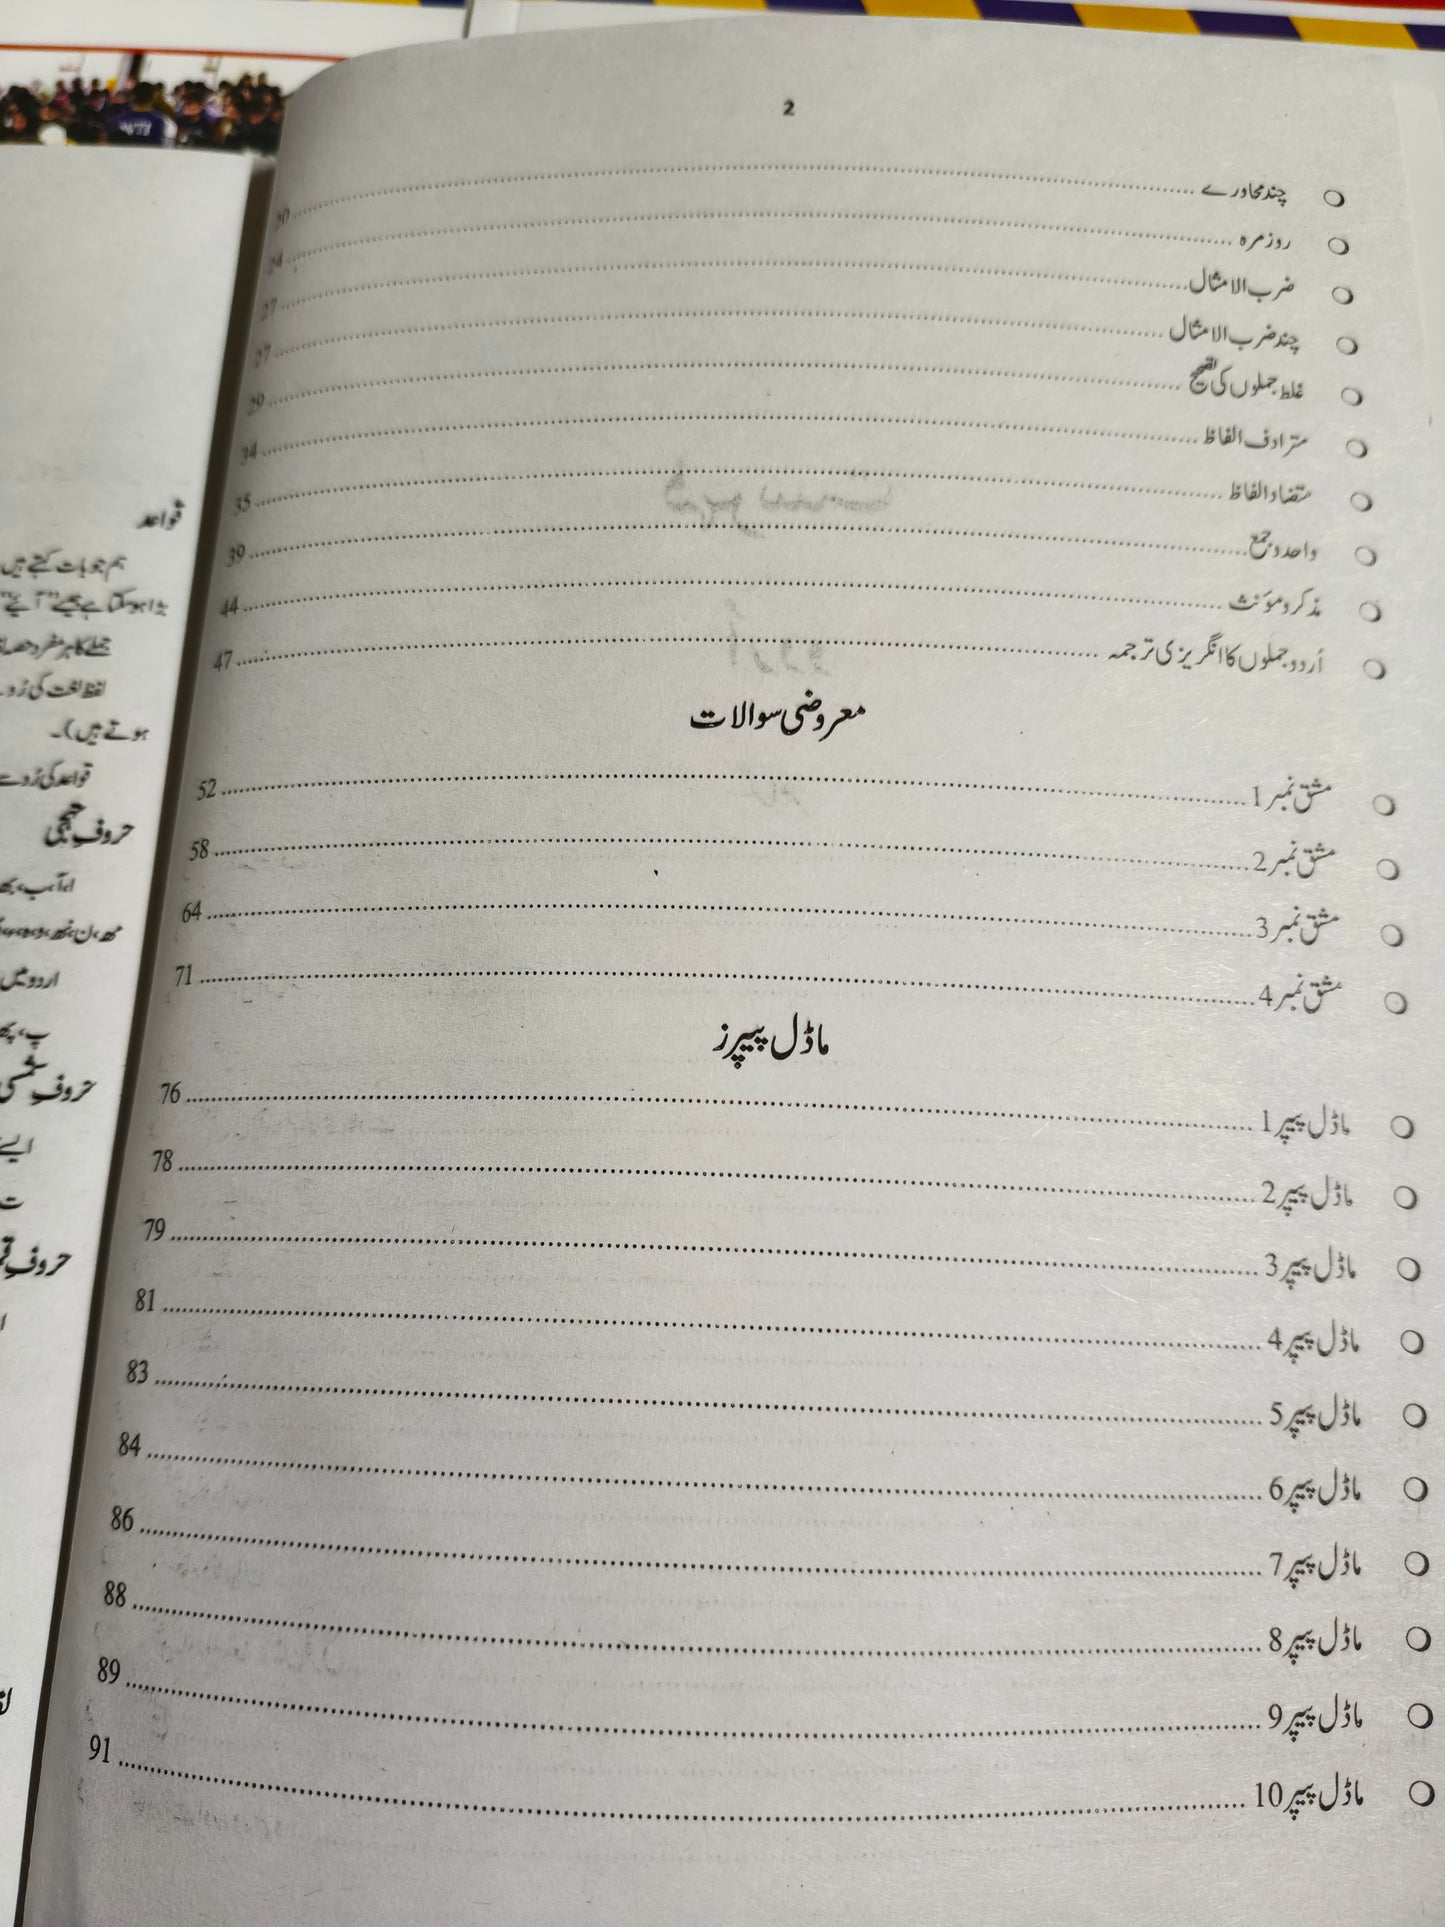 2
چند محاورے
روزمرہ ........ 24
ضرب الامثال ........ 27
چند ضرب الامثال ........ 27
غلط جملوں کی تصحیح ........ 29
مترادف الفاظ ........ 34
متضاد الفاظ ........ 35
واحد و جمع ........ 39
مذکر و مونث ........ 44
اُردو جملوں کا انگریزی ترجمہ ........ 47
معروضی سوالات
مشق نمبر 1 ........ 52
مشق نمبر 2 ........ 58
مشق نمبر 3 ........ 64
مشق نمبر 4 ........ 71
ماڈل پیپرز
ماڈل پیپر 1 ........ 76
ماڈل پیپر 2 ........ 78
ماڈل پیپر 3 ........ 79
ماڈل پیپر 4 ........ 81
ماڈل پیپر 5 ........ 83
ماڈل پیپر 6 ........ 84
ماڈل پیپر 7 ........ 86
ماڈل پیپر 8 ........ 88
ماڈل پیپر 9 ........ 89
ماڈل پیپر 10 ........ 91
قواعد
ہم جو بات کہتے ہیں
بڑا ہو سکتا ہے جیسے "آیئے"
جملے کا ہر مفرد حصہ
لفظ لغت کی رُو
ہوتے ہیں)۔
قواعد کی رُو سے
حروفِ تہجی
اردو میں
حروفِ شمسی
ایسے
ت